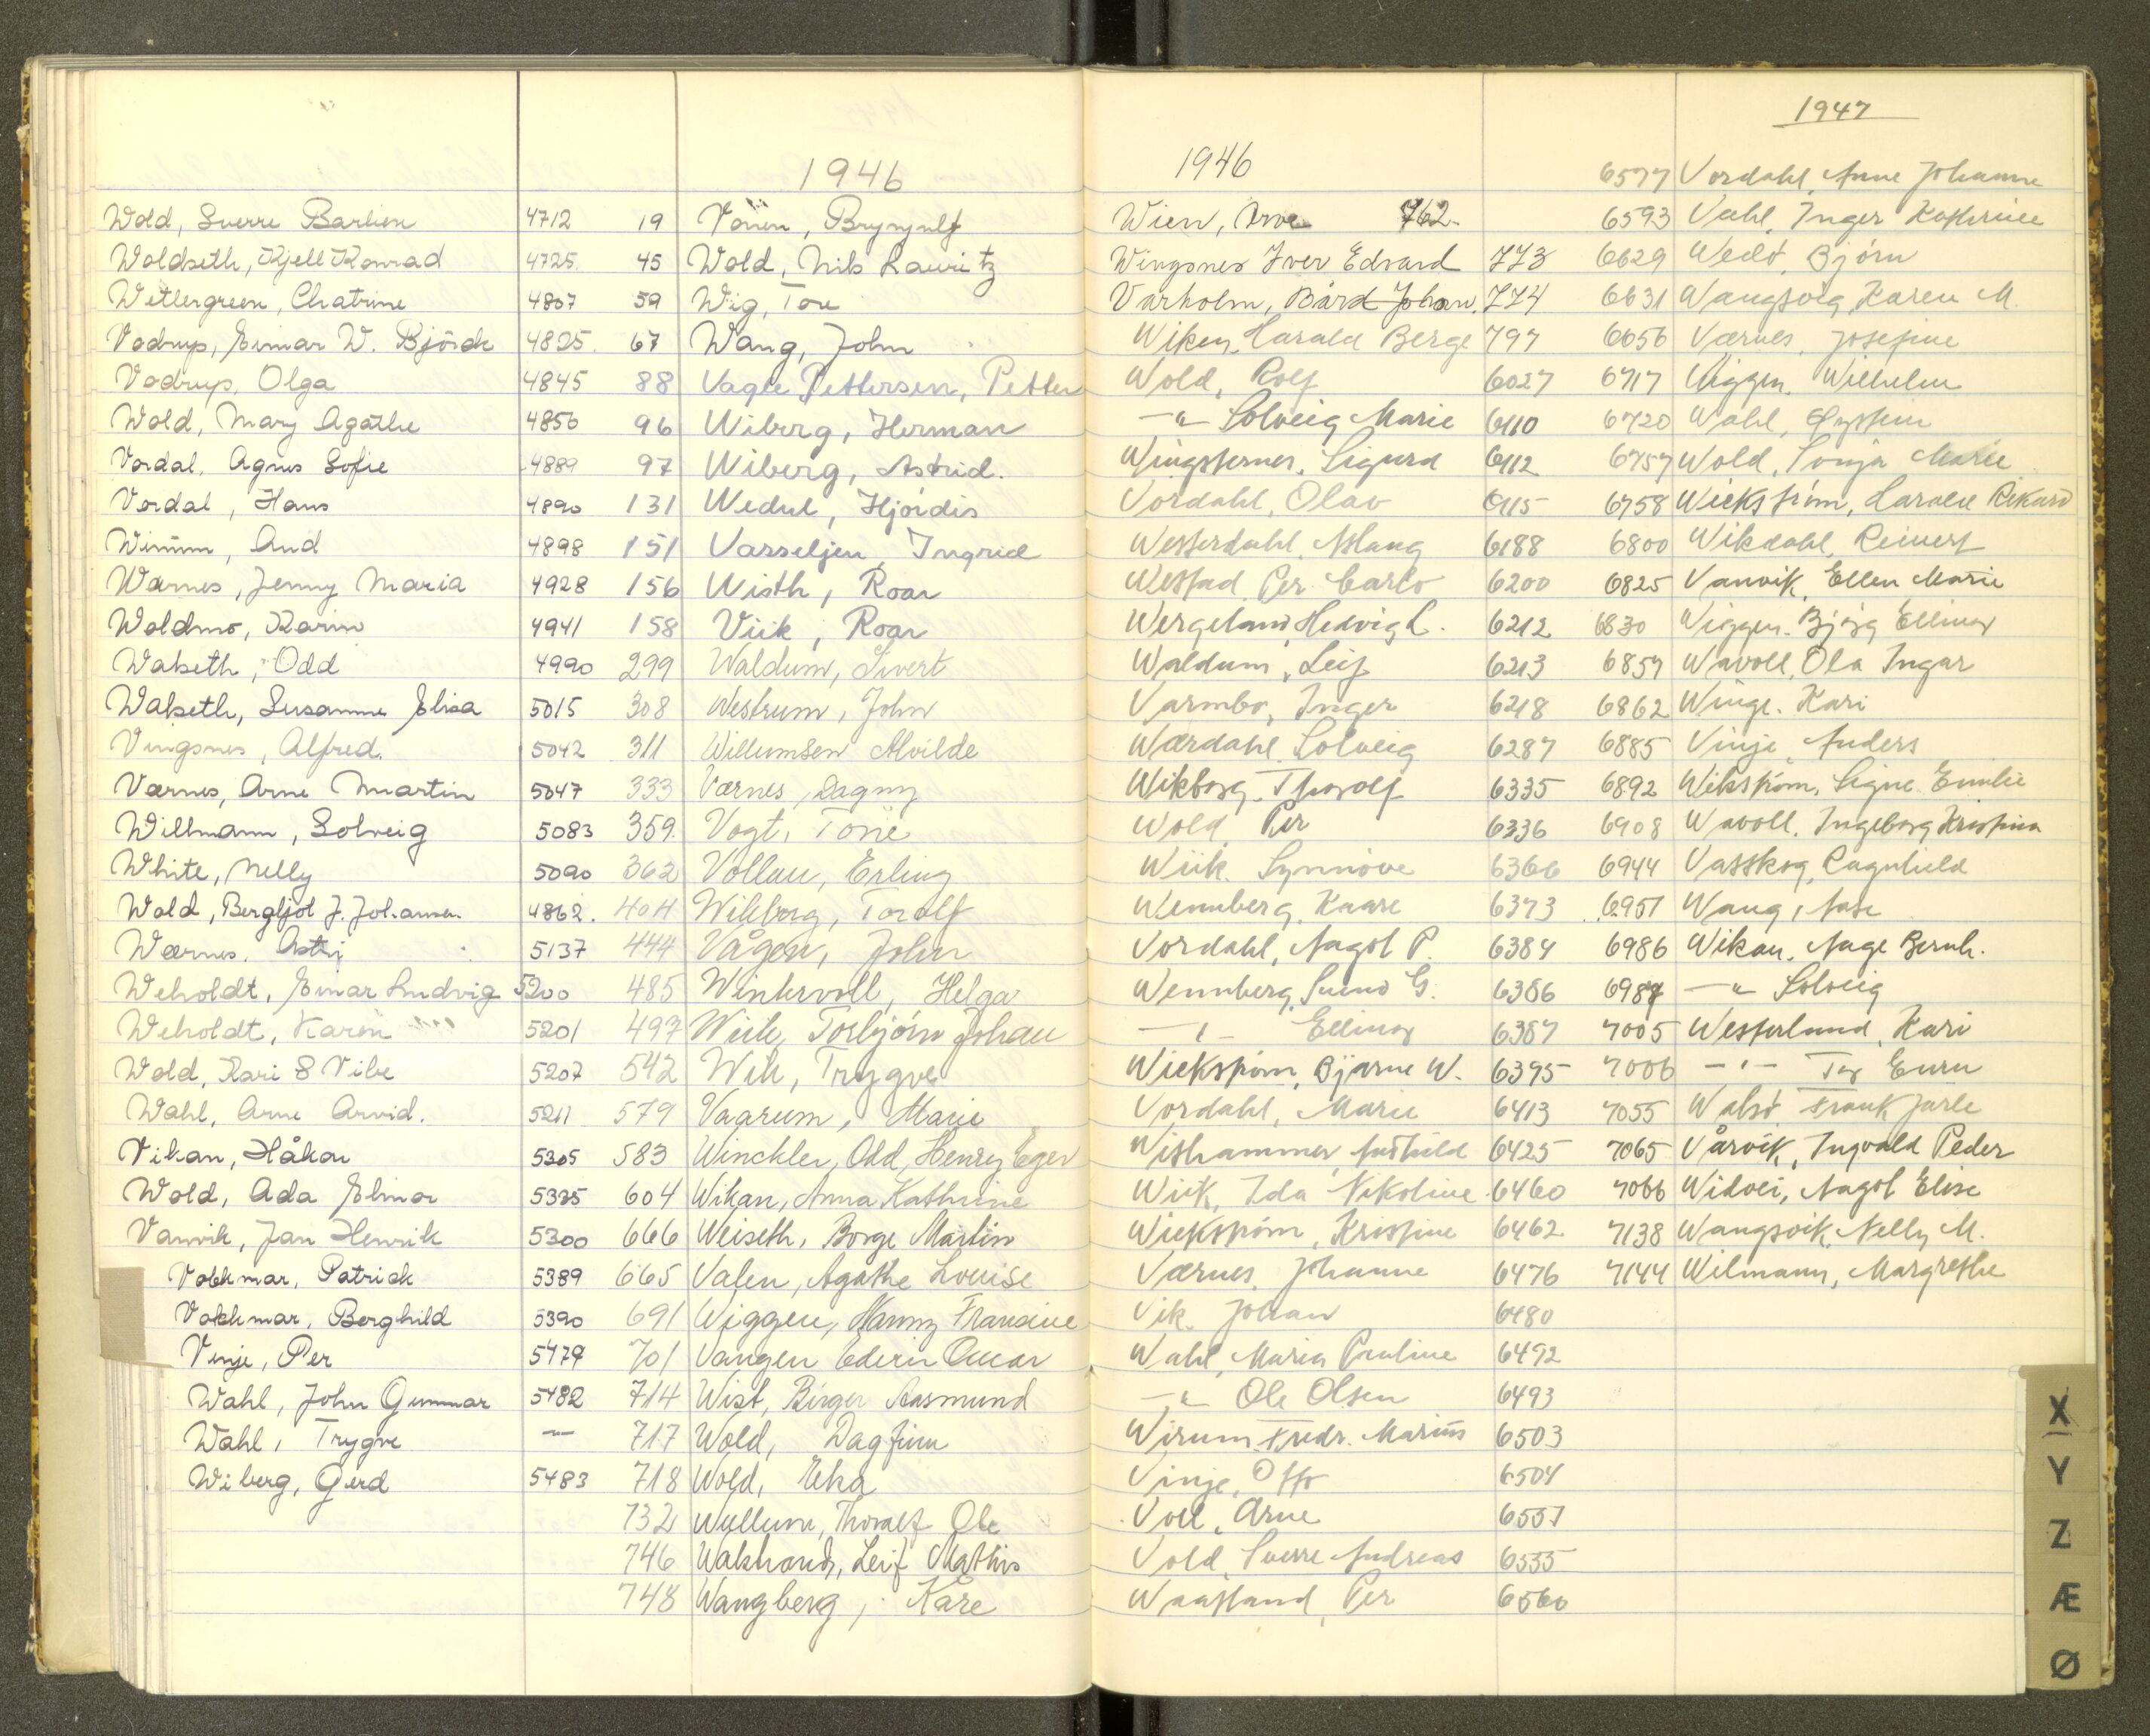 1946
Wold, Sverre Barlien 4712
Woldseth, Kjell Konrad 4725
Wetlergreen, Chatrine 4807
Vadrup, Einar W. Björck 4825
Vadrup, Olga 4845
Wold, Mary Agathe 4850
Vordal, Agnes Sofie 4889
Vordal, Hans 4890
Wimm, Aud 4898
Wærnes, Jenny Maria 4928
Woldmo, Karin 4941
Walseth, Odd 4990
Walseth, Susanne Elisa 5015
Vingsnes, Alfred. 5042
Værnes, Arne Martin 5047
Willmann, Solveig 5083
White, Nelly 5090
Wold, Bergljot J. Johansen 4862.
Wærnes, Astri 5137
Weholdt, Einar Ludvig 5200
Weholdt, Karen 5201
Wold, Kari S Vibe 5207
Wahl, Arne Arvid. 5211
Vikan, Håkon 5305
Wold, Ada Elinor 5335
Vanvik, Jan Henrik 5300
Volckmar, Patrick 5389
Volckmar, Borghild 5390
Vinje, Per 5479
Wahl, John Gunnar 5482
Wahl, Trygve —
Wiberg, Gerd 5483
19 Brynjulf
45 Wold, Nils Lauritz
59 Wig, Tore
67 Wang, John
88 Vagle Pettersen, Petter
96 Wiberg, Herman
97 Wiberg, Astrid.
131 Wedul, Hjördis
151 Vasseljen, Ingrid
156 Wisth, Roar
158 Viik, Roar
299 Waldum, Sivert
308 Westrum, John
311 Willumsen Alvilde
333 Værnes, Dagny
359. Vogt, Tone
362 Vollan, Erling
404 Wikborg, Toralf
444 Vågen, John
485 Wintervoll, Helga
497 Wiik, Torbjörn Johan
542 Wik, Trygve
579 Vaarum, Marie
583 Winckler, Odd, Henry Eger
604 Wikan, Anna Kathrine
666 Weiseth, Borge Martin
665 Valen, Agathe Louise
691 Wiggen, Nanny Francine
701 Vangen Edvin Oscar
714 Wist, Birger Aasmund
717 Wold, Dagfinn
718 Wold, Eka
732 Wullum, Thoralf Ole
746 Wakstrand, Leif Mathis
748 Wangberg, Kåre
1946
Wien, Arve 762.
Wingsnes Iver Edvard 773
Varholm, Bård Johan. 774
Wiken, Harald Berge 797
Wold, Rolf 6027
—"— Solveig Marie 6110
Wingsternes, Sigurd 6112
Vordahl, Olav 6115
Westerdahl, Aslaug 6188
Westad, Per Carlo 6200
Wergeland, Hedvig L. 6212
Waldum, Leif 6213
Varmbo, Inger 6218
Wærdahl, Solveig 6287
Wikborg, Thorolf 6335
Wold Per 6336
Wiik, Synnöve 6366
Wennberg, Kaare 6373
Vordahl, Aagot P. 6384
Wennberg, Svend G. 6386
—"— Ellinor 6387
Wickström, Bjarne W. 6395
Vordahl, Marie 6413
Wishammer, Asthild 6425
Wiik, Ida Nikoline 6460
Wickström, Kristine 6462
Værnes, Johanne 6476
Vik, Johan 6480
Wahl, Maria Pauline 6492
—"— Ole Olsen 6493
Wirum, Fredr. Marius 6503
Vinje, Otto 6504
Voll, Arne 6557
Vold, Sverre Andreas 6555
Waatland, Per 6560
1947
6577 Vordahl, Anne Johanne
6593 Vahl, Inger Kathrine
6629 Wedö, Björn
6631 Wangsvig, Karen M.
6656 Værnes, Josefine
6717 Viggen, Wilhelm
6720 Wahl, Øystein
6757 Wold, Sonja Marie
6758 Wickström, Harald Rikard
6800 Wikdahl, Reinert
6825 Vanvik, Ellen Marie
6830 Wiggen, Bjørg Ellinor
6857 Wavoll, Ola Ingar
6862 Winge, Kari
6885 Vinje, Anders
6892 Wikström, Signe Emilie
6908 Wavoll, Ingeborg Kristina
6944 Vasskog, Ragnhild
6951 Wang, Aase
6986 Wikan, Aage Bernh.
6987 —"— Solveig
7005 Westerlund, Kari
7006 —"—
7055 Walsö, Frank Jarle
7065 Vårvik, Ingvald Peder
7066 Widvei, Aagot Elise
7138 Wangsvik, Nelly M.
7144 Wilmann, Margrethe
X
Y
Z
Æ
Ø